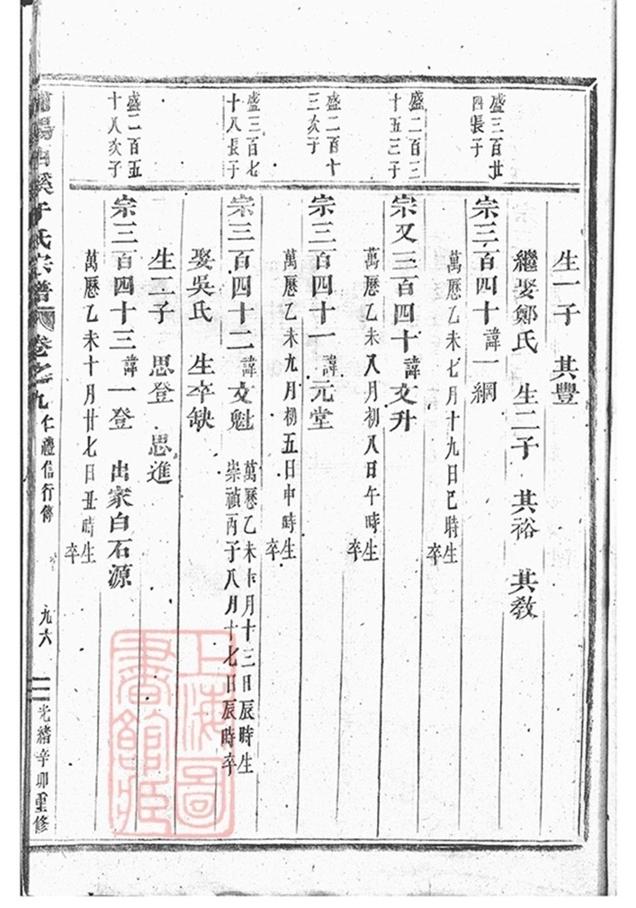 生一子 其豐
繼娶鄭氏 生二子 其裕 其教
盛三百廿四長子
宗三百四十 諱一綱
萬曆乙未七月十九日巳時生
卒
盛二百三十五三子
宗又三百四十 諱文升
萬曆乙未八月初八日午時生
卒
盛二百十三次子
宗三百四十一 諱元堂
萬曆乙未九月初五日申時生
卒
盛三百七十八長子
宗三百四十二 諱文魁
萬曆乙未十月十三日辰時生
崇禎丙子八月十七日辰時卒
娶吳氏 生卒缺
生二子 思登 思進
盛二百五十八次子
宗三百四十三 諱一登 出家白石源
萬曆乙未十月廿七日丑時生
卒
陽 溪于氏宗譜 卷之九 仁禮信行傳 九六 光緒辛卯重修
上海圖書館藏